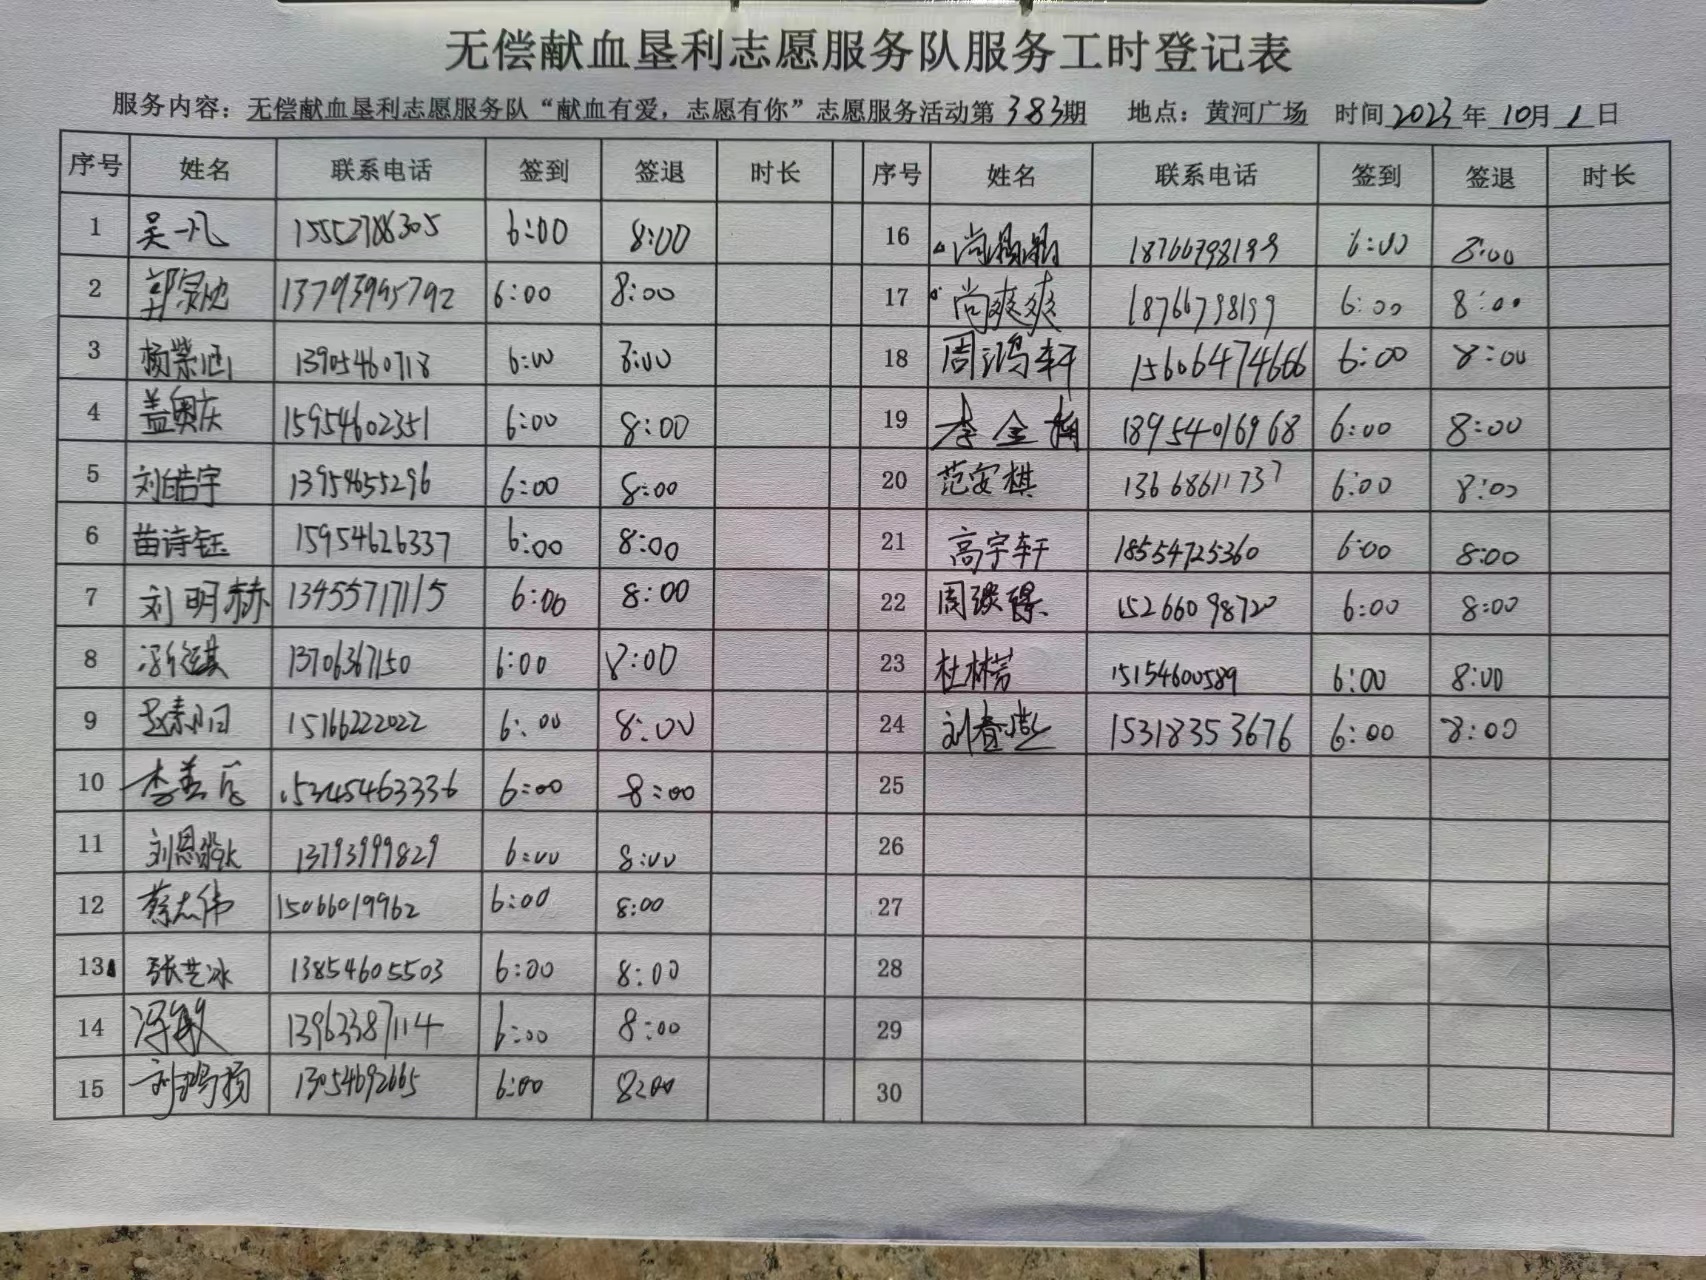 无偿献血垦利志愿服务队服务工时登记表
服务内容：无偿献血垦利志愿服务队“献血有爱，志愿有你”志愿服务活动第383期 地点：黄河广场 时间2023年10月1日
序号 姓名 联系电话 签到 签退 时长 序号 姓名 联系电话 签到 签退 时长
1 吴一凡 15552788305 6:00 8:00 16 18766798199 6:00 8:00
2 13793995792 6:00 8:00 17 尚爽爽 18766798199 6:00 8:00
3 杨紫涵 13905460718 6:00 8:00 18 周鸿轩 15606474666 6:00 8:00
4 盖奥庆 15954602351 6:00 8:00 19 李金梅 18954016968 6:00 8:00
5 刘皓宇 13954655296 6:00 8:00 20 范安棋 13668611737 6:00 8:00
6 苗诗钰 15954626337 6:00 8:00 21 高宇轩 18554725360 6:00 8:00
7 刘明赫 13455717115 6:00 8:00 22 15266098720 6:00 8:00
8 13706367150 6:00 8:00 23 杜林芳 15154600589 6:00 8:00
9 15166222022 6:00 8:00 24 15318353676 6:00 8:00
10 15345463336 6:00 8:00 25
11 13793999829 6:00 8:00 26
12 蔡志伟 15066019962 6:00 8:00 27
13 张艺冰 13854605503 6:00 8:00 28
14 冯敏 13963387114 6:00 8:00 29
15 刘鸿扬 13054692665 6:00 8:00 30